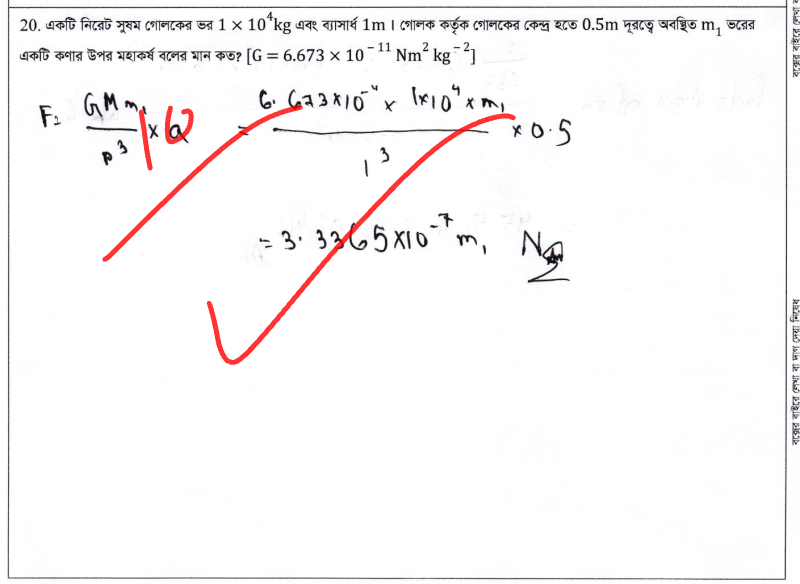 20. একটি নিরেট সুষম গোলকের ভর 1 × 10⁴kg এবং ব্যাসার্ধ 1m। গোলক কর্তৃক গোলকের কেন্দ্র হতে 0.5m দূরত্বে অবস্থিত m₁ ভরের
একটি কণার উপর মহাকর্ষ বলের মান কত? [G = 6.673 × 10⁻¹¹ Nm² kg⁻²]
F = GMm₁/R³ × a = 6.673×10⁻¹¹ × 1×10⁴ × m₁/1³ × 0.5
= 3.3365×10⁻⁷ m₁ N